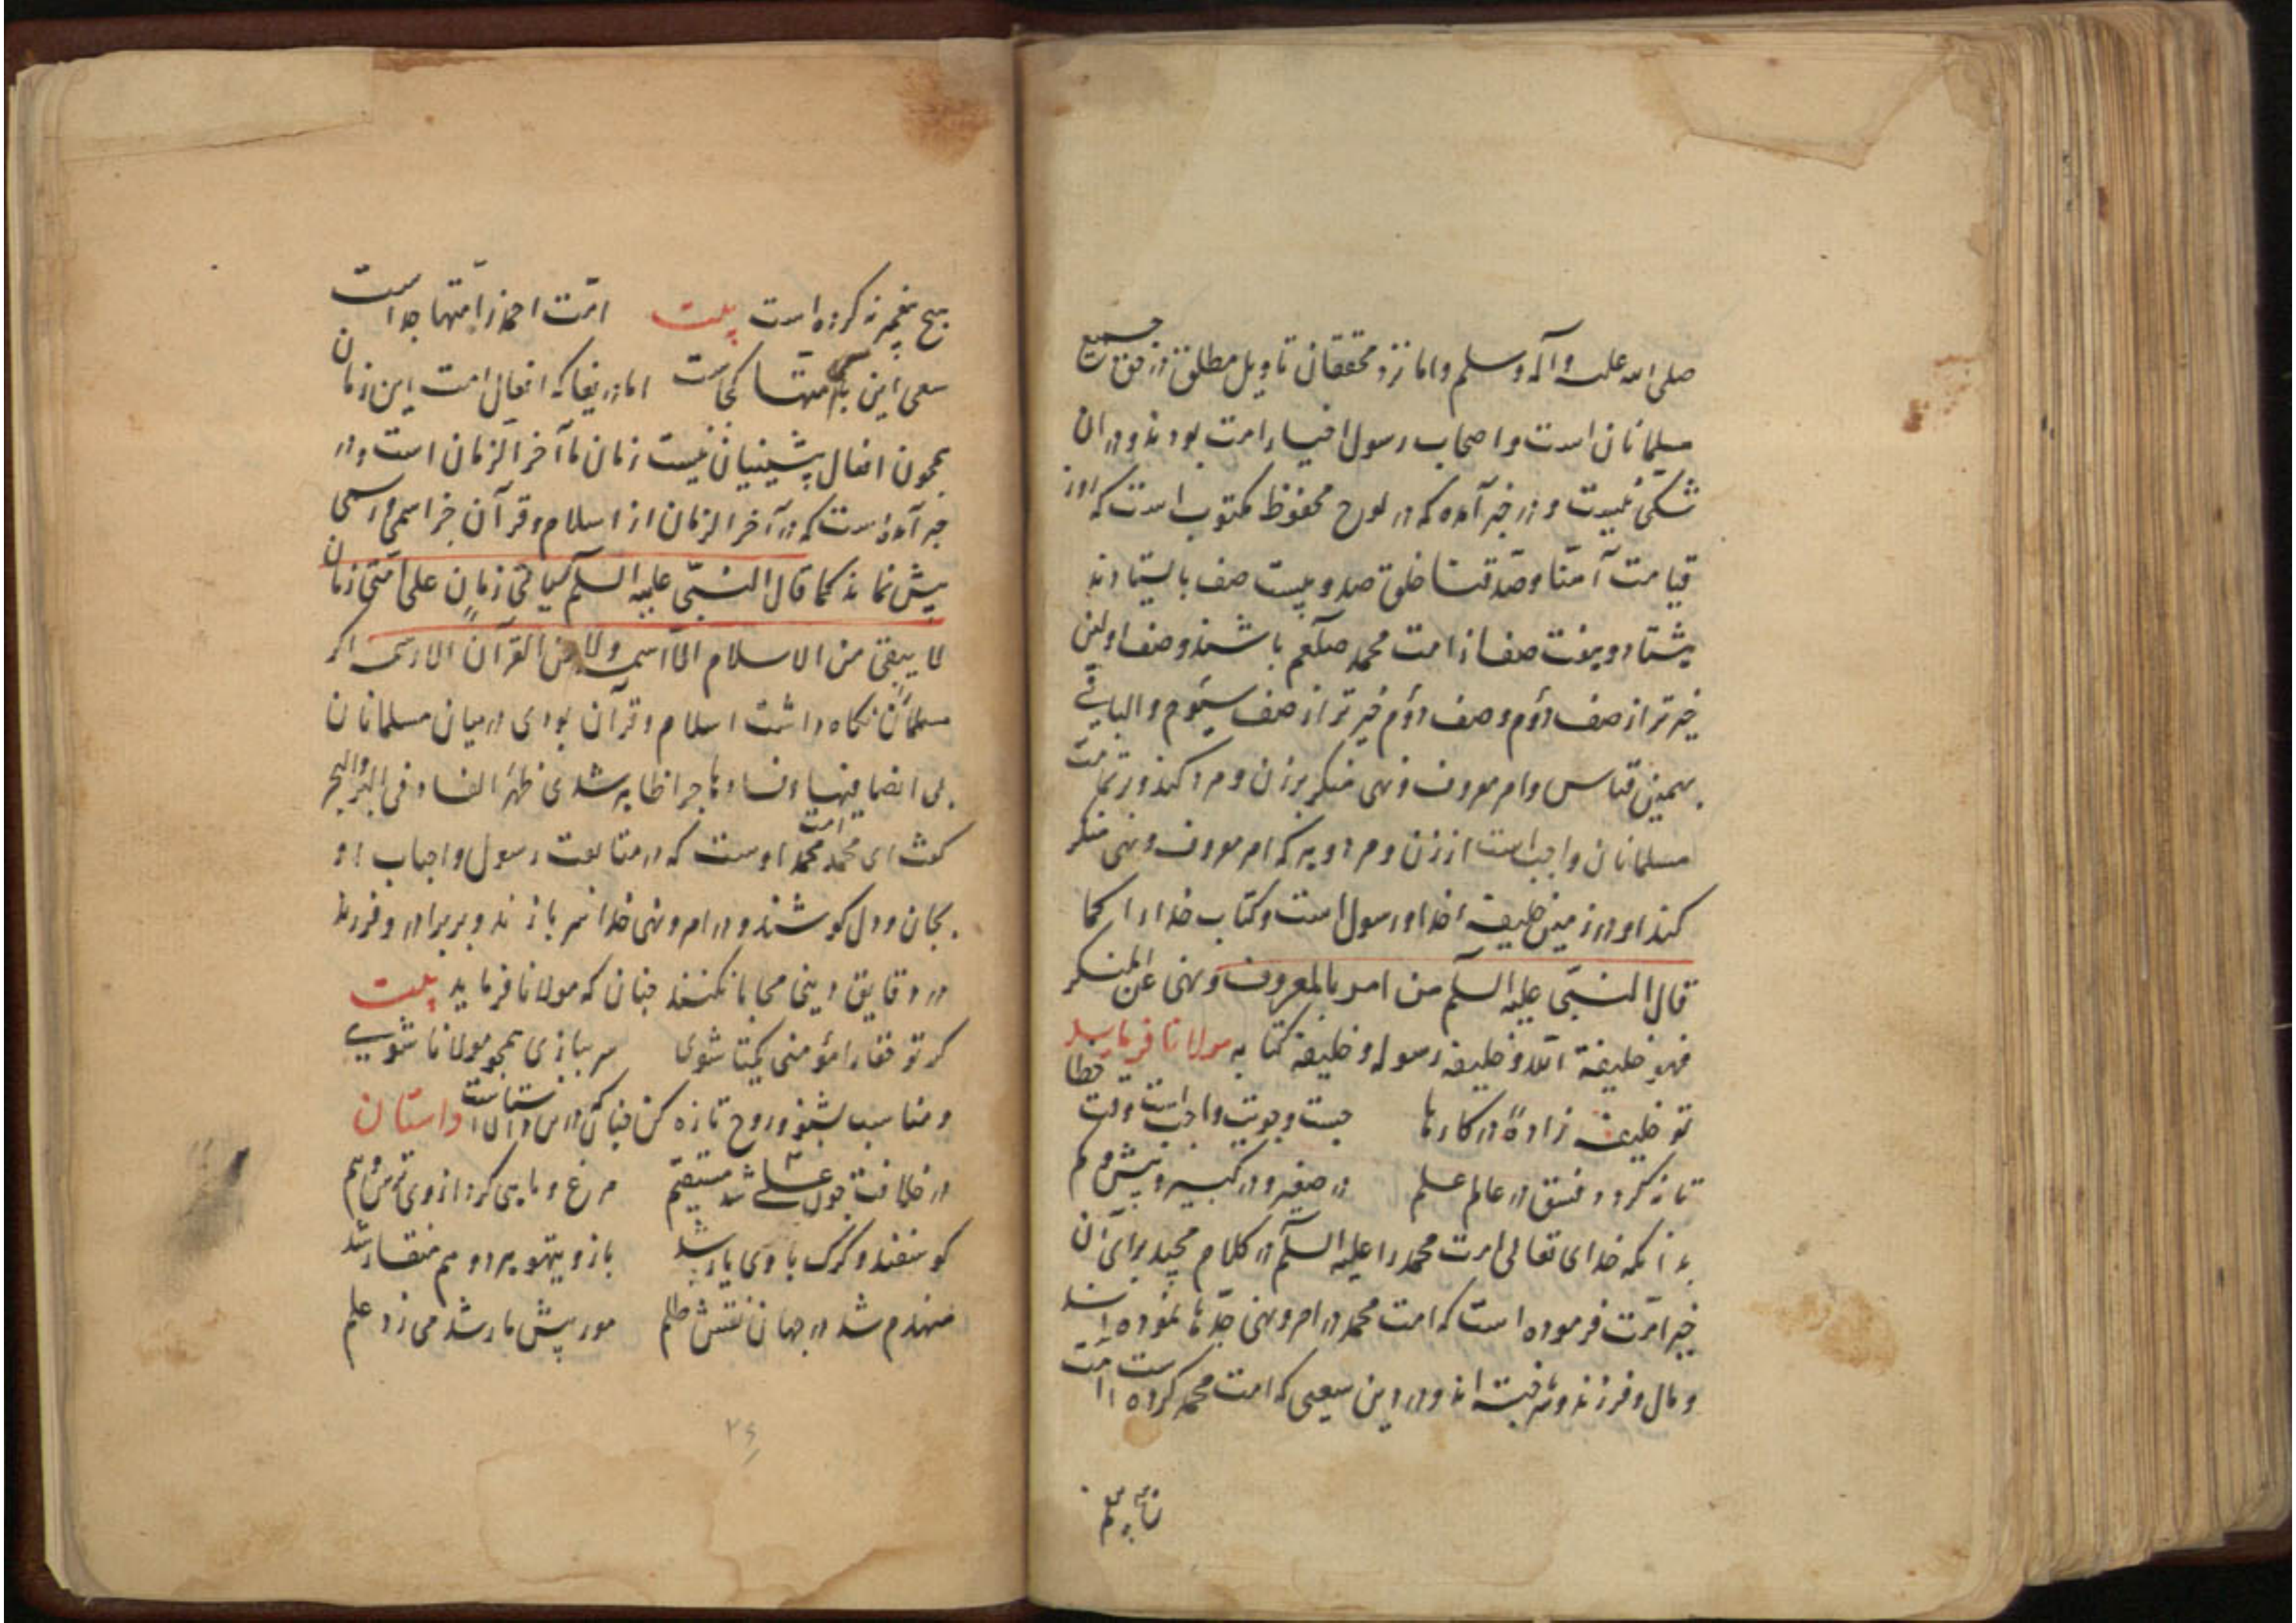 صلی الله علیه وآله وسلم واما نزد محققان تاویل مطلق در حق جمیع
مسلمانان است واصحاب رسول اخیار امت بودند ودر ان
شکی نیست و در خبر آمده که در لوح محفوظ مکتوب است که روز
قیامت آمنا وصدقنا خلق صد و بیست صف بایستادند
هشتاد و هفت صف از امت محمد صلعم باشند وصف اولین
خیر تر از صف دوم وصف دوم خیر تر از صف سیوم والباقی
بهمین قیاس وامر معروف ونهی منکر بر زن ومرد کند ور تمامت
مسلمانان واجب است از زن ومرد وهر که امر معروف ونهی منکر
کند او در زمین خلیفه خدا ورسول است وکتاب خدا را کما
قال النبی علیه السلم من امر بالمعروف ونهی عن المنکر
فهو خلیفة الله وخلیفه رسوله وخلیفه کتابه مولانا فرماید
تو خلیفه زادهٔ در کارها جست وجویت واجب است وقت خطا
تا نه گردد فسق در عالم علم در صغیر ودر کبیر وبیش وکم
بدانکه خدای تعالی امت محمد را علیه السلم در کلام مجید برای آن
خیر امت فرموده است که امت محمد در امر ونهی جدها نموده اند
ومال وفرزند و اند ودر دین سعیی که امت محمد کرده است امت
هیچ پیغمبر نه کرده است بیت امت احمد ز امتها جداست
سعی این با امتها کجاست اما دریغا که افعال امت این زمان
همچون افعال پیشینیان نیست زمان ما آخر الزمان است ودر
خبر آمده است که در آخر الزمان از اسلام وقرآن جز اسمی ورسمی
بیش نماند کما قال النبی علیه السلم سیاتی زمان علی امتی زمان
لا یبقی من الاسلام الا اسمه ولا من القرآن الا رسمه اگر
مسلمانان نگاه داشت اسلام وقرآن بودی در میان مسلمانان
بی انصافیها وفسادها چرا ظاهر شدی ظهر الفساد فی البر والبحر
ای محمد امت محمد اوست که در متابعت رسول واحباب او
بجان ودل کوشند ودر امر ونهی خدا سر بازند وبر برادر وفرزند
در دقایق دینی محابا نکنند چنان که مولانا فرماید بیت
گر تو فقار امؤمنی یکتا شوی سر ببازی همچو مولانا شویی
ومناسب بشنو وروح تازه کن چنانک در داستان است داستان
در خلافت چون علی شد مستقیم مرغ وماهی کرد از وی ترس وبیم
گوسفند وگرگ با وی یار شد باز وتیهو هر دو هم منقار شد
منهدم شد در جهان نقش ظلم مور پیش مار شد می زد علم
۲۶